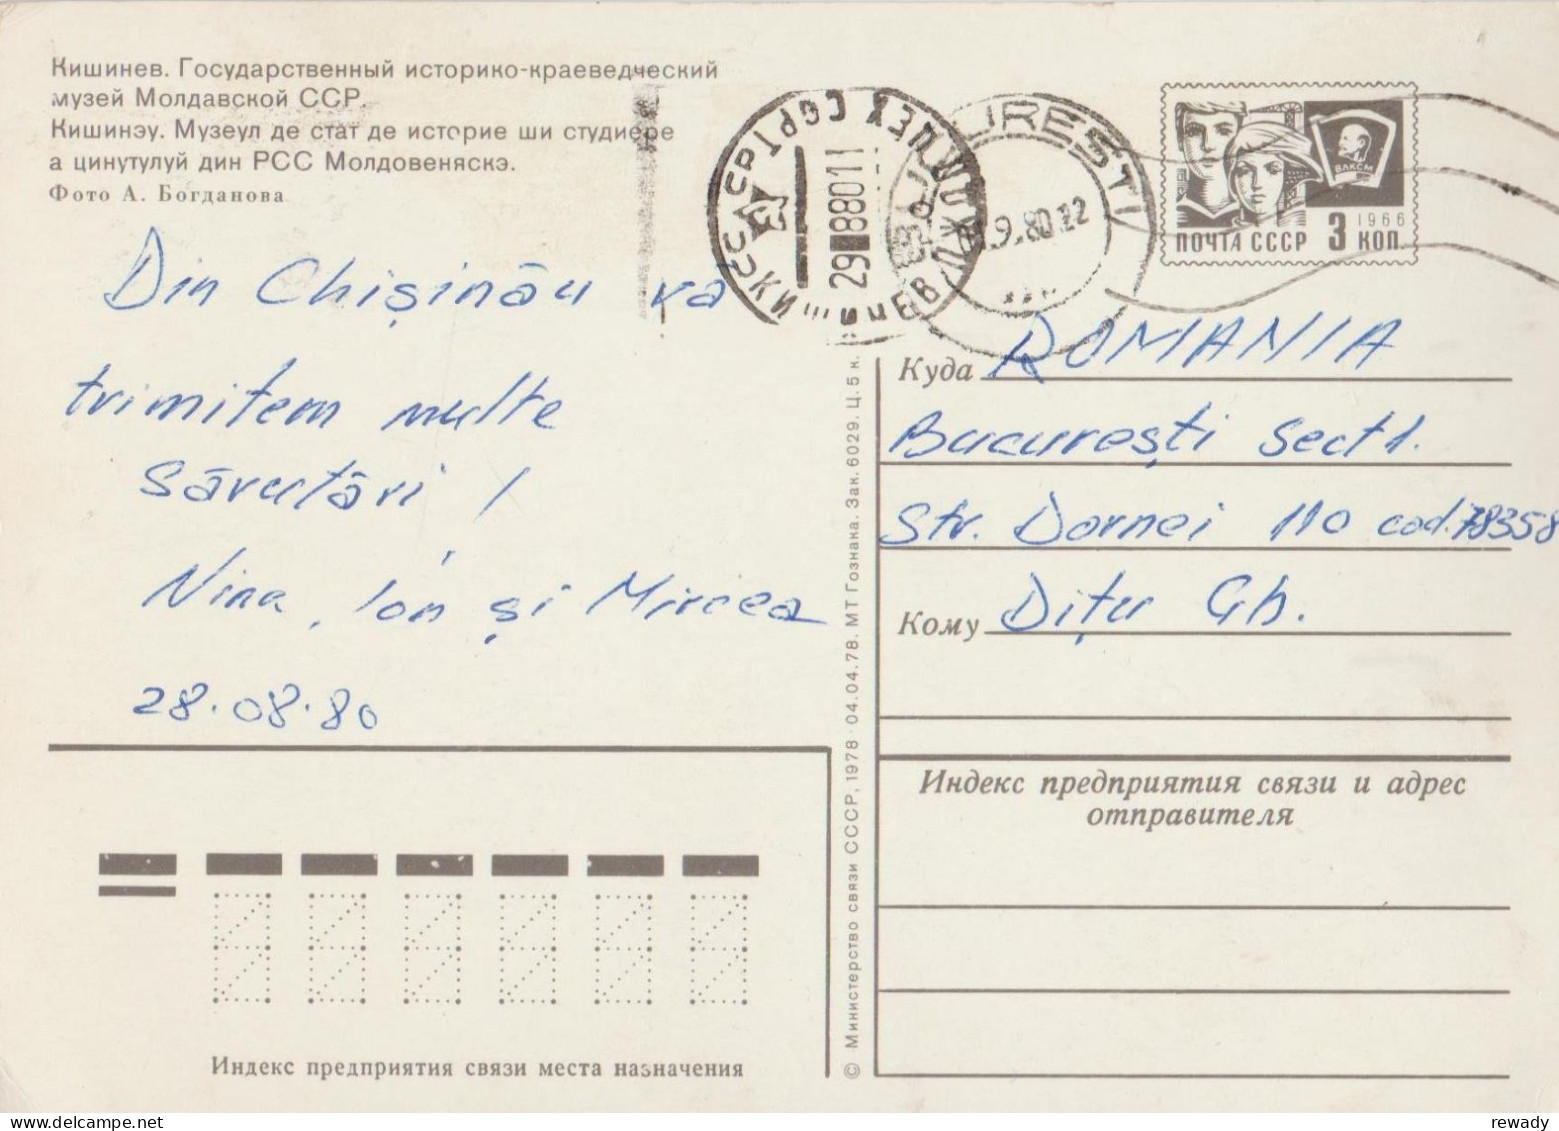 Кишинев. Государственный историко-краеведческий
музей Молдавской ССР.
Кишинэу. Музеул де стат де историе ши студиере
а цинутулуй дин РСС Молдовеняскэ.
Фото А. Богданова
Din Chișinău vă
trimitem multe
Sărutări!
Nina, Ion și Mircea
28.08.80
29 8 80 11
9.80.12
ВЛКСМ
1966
ПОЧТА СССР 3 КОП.
Куда ROMANIA
București Sect 1.
Str. Dornei 110 cod. 78358
Кому Dițu Gh.
Индекс предприятия связи и адрес
отправителя
Индекс предприятия связи места назначения
© Министерство связи СССР, 1978 · 04.04.78. МТ Гознака. Зак. 6029. Ц. 5 к.
rewady